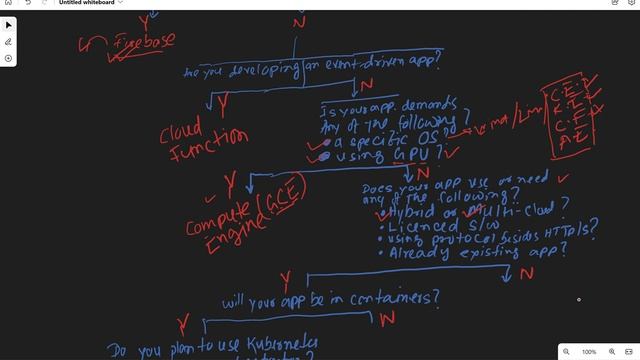 Untitled whiteboard
Y N
Firebase
Are you developing an event-driven app?
Y N
Cloud Function
Is your app demands
Any of the following?
• a specific OS?
• using GPU?
Y N
Compute Engine (GCE)
Does your app use or need
any of the following?
• Hybrid or Multi-cloud?
• Licenced S/W
• using protocol besides HTTP/S?
• Already existing app?
Y N
will your app be in containers?
Y N
Do you plan to use Kubernetes
100%